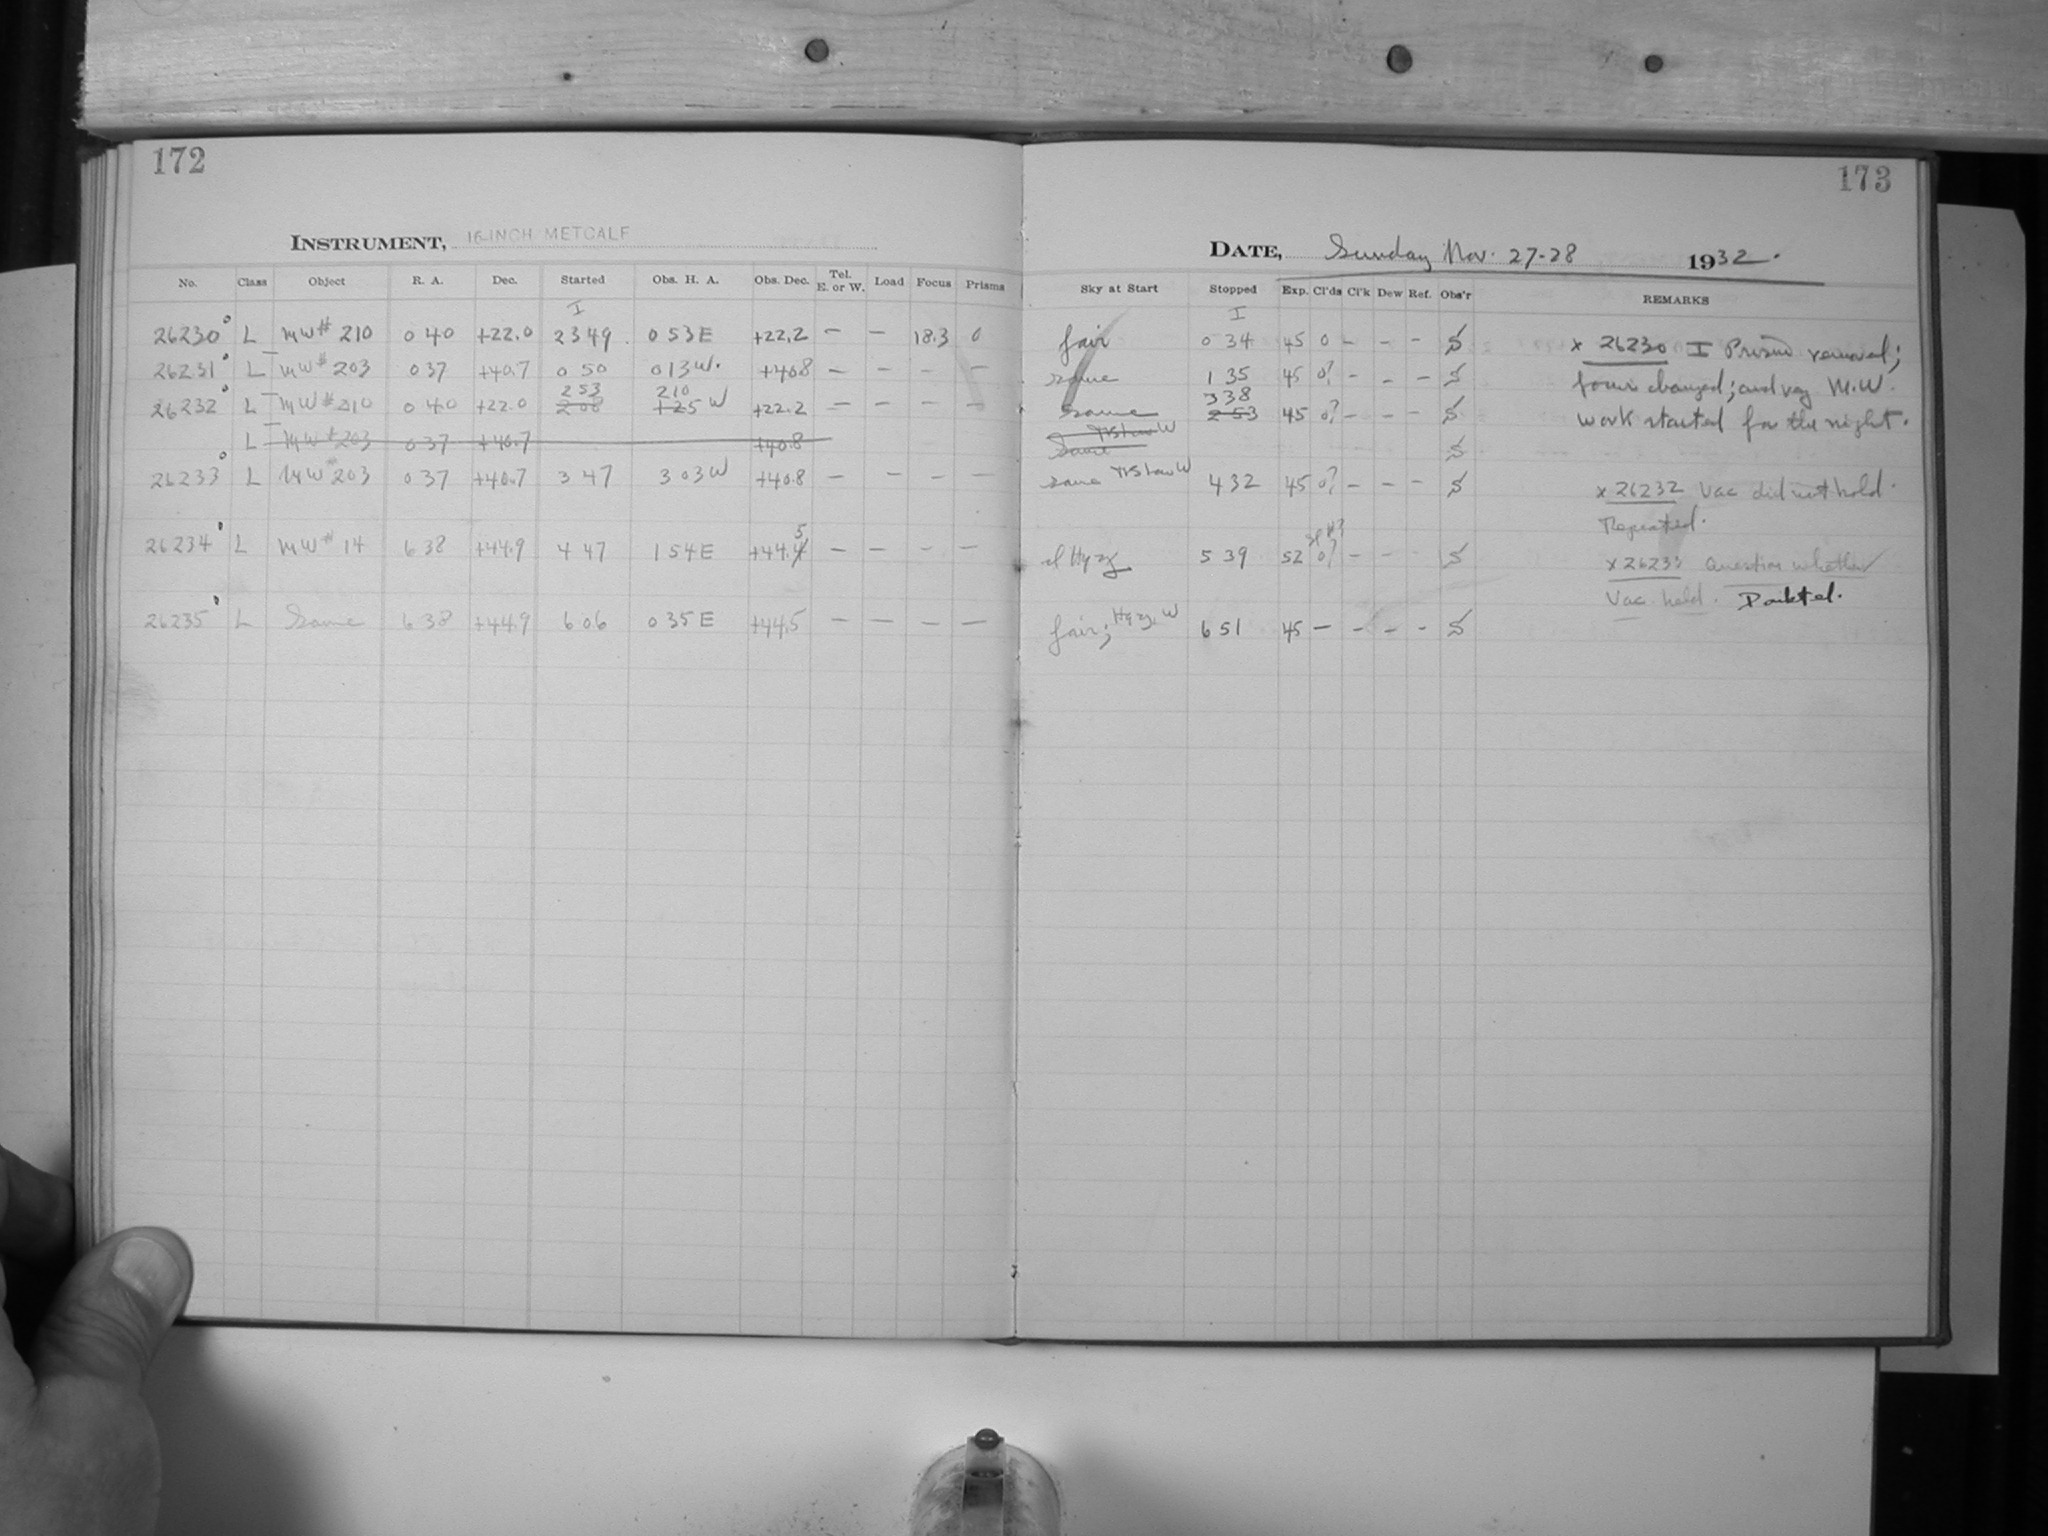 172
173
INSTRUMENT, 16-INCH METCALF
DATE, Sunday Nov. 27-28 1932.
No. Class Object R. A. Dec. Started Obs. H. A. Obs. Dec. Tel. E. or W. Load Focus Prisms Sky at Start Stopped Exp. Cl'ds Cl'k Dew Ref. Obs'r REMARKS
I I
26230 L MW# 210 0 40 +22.0 23 49 0 53 E +22.2 — — 18.3 0 fair 0 34 45 0 - - - S x 26230 I Prism removed;
26231 L MW# 203 0 37 +40.7 0 50 0 13 W. +40.8 — — — — same 1 35 45 0? - - - S focus changed; and reg M.W.
253 210 338
26232 L MW# 210 0 40 +22.0 208 +25 W +22.2 — — — — same 253 45 0? - - - S work started for the night.
L MW# 203 0 37 +40.7 +40.8 Same S
26233 L MW# 203 0 37 +40.7 3 47 3 03 W +40.8 — — — — same W 4 32 45 0? - - - S x 26232 Vac did not hold.
Repeated.
5
26234 L MW# 14 6 38 +44.9 4 47 1 54 E +44.4 — — — — sl Hyzy 5 39 52 0? - - - S x 26233 Question whether
Vac held.
26235 L Same 6 38 +44.9 6 06 0 35 E +44.5 — — — — fair; Hazy W 6 51 45 — - - - S